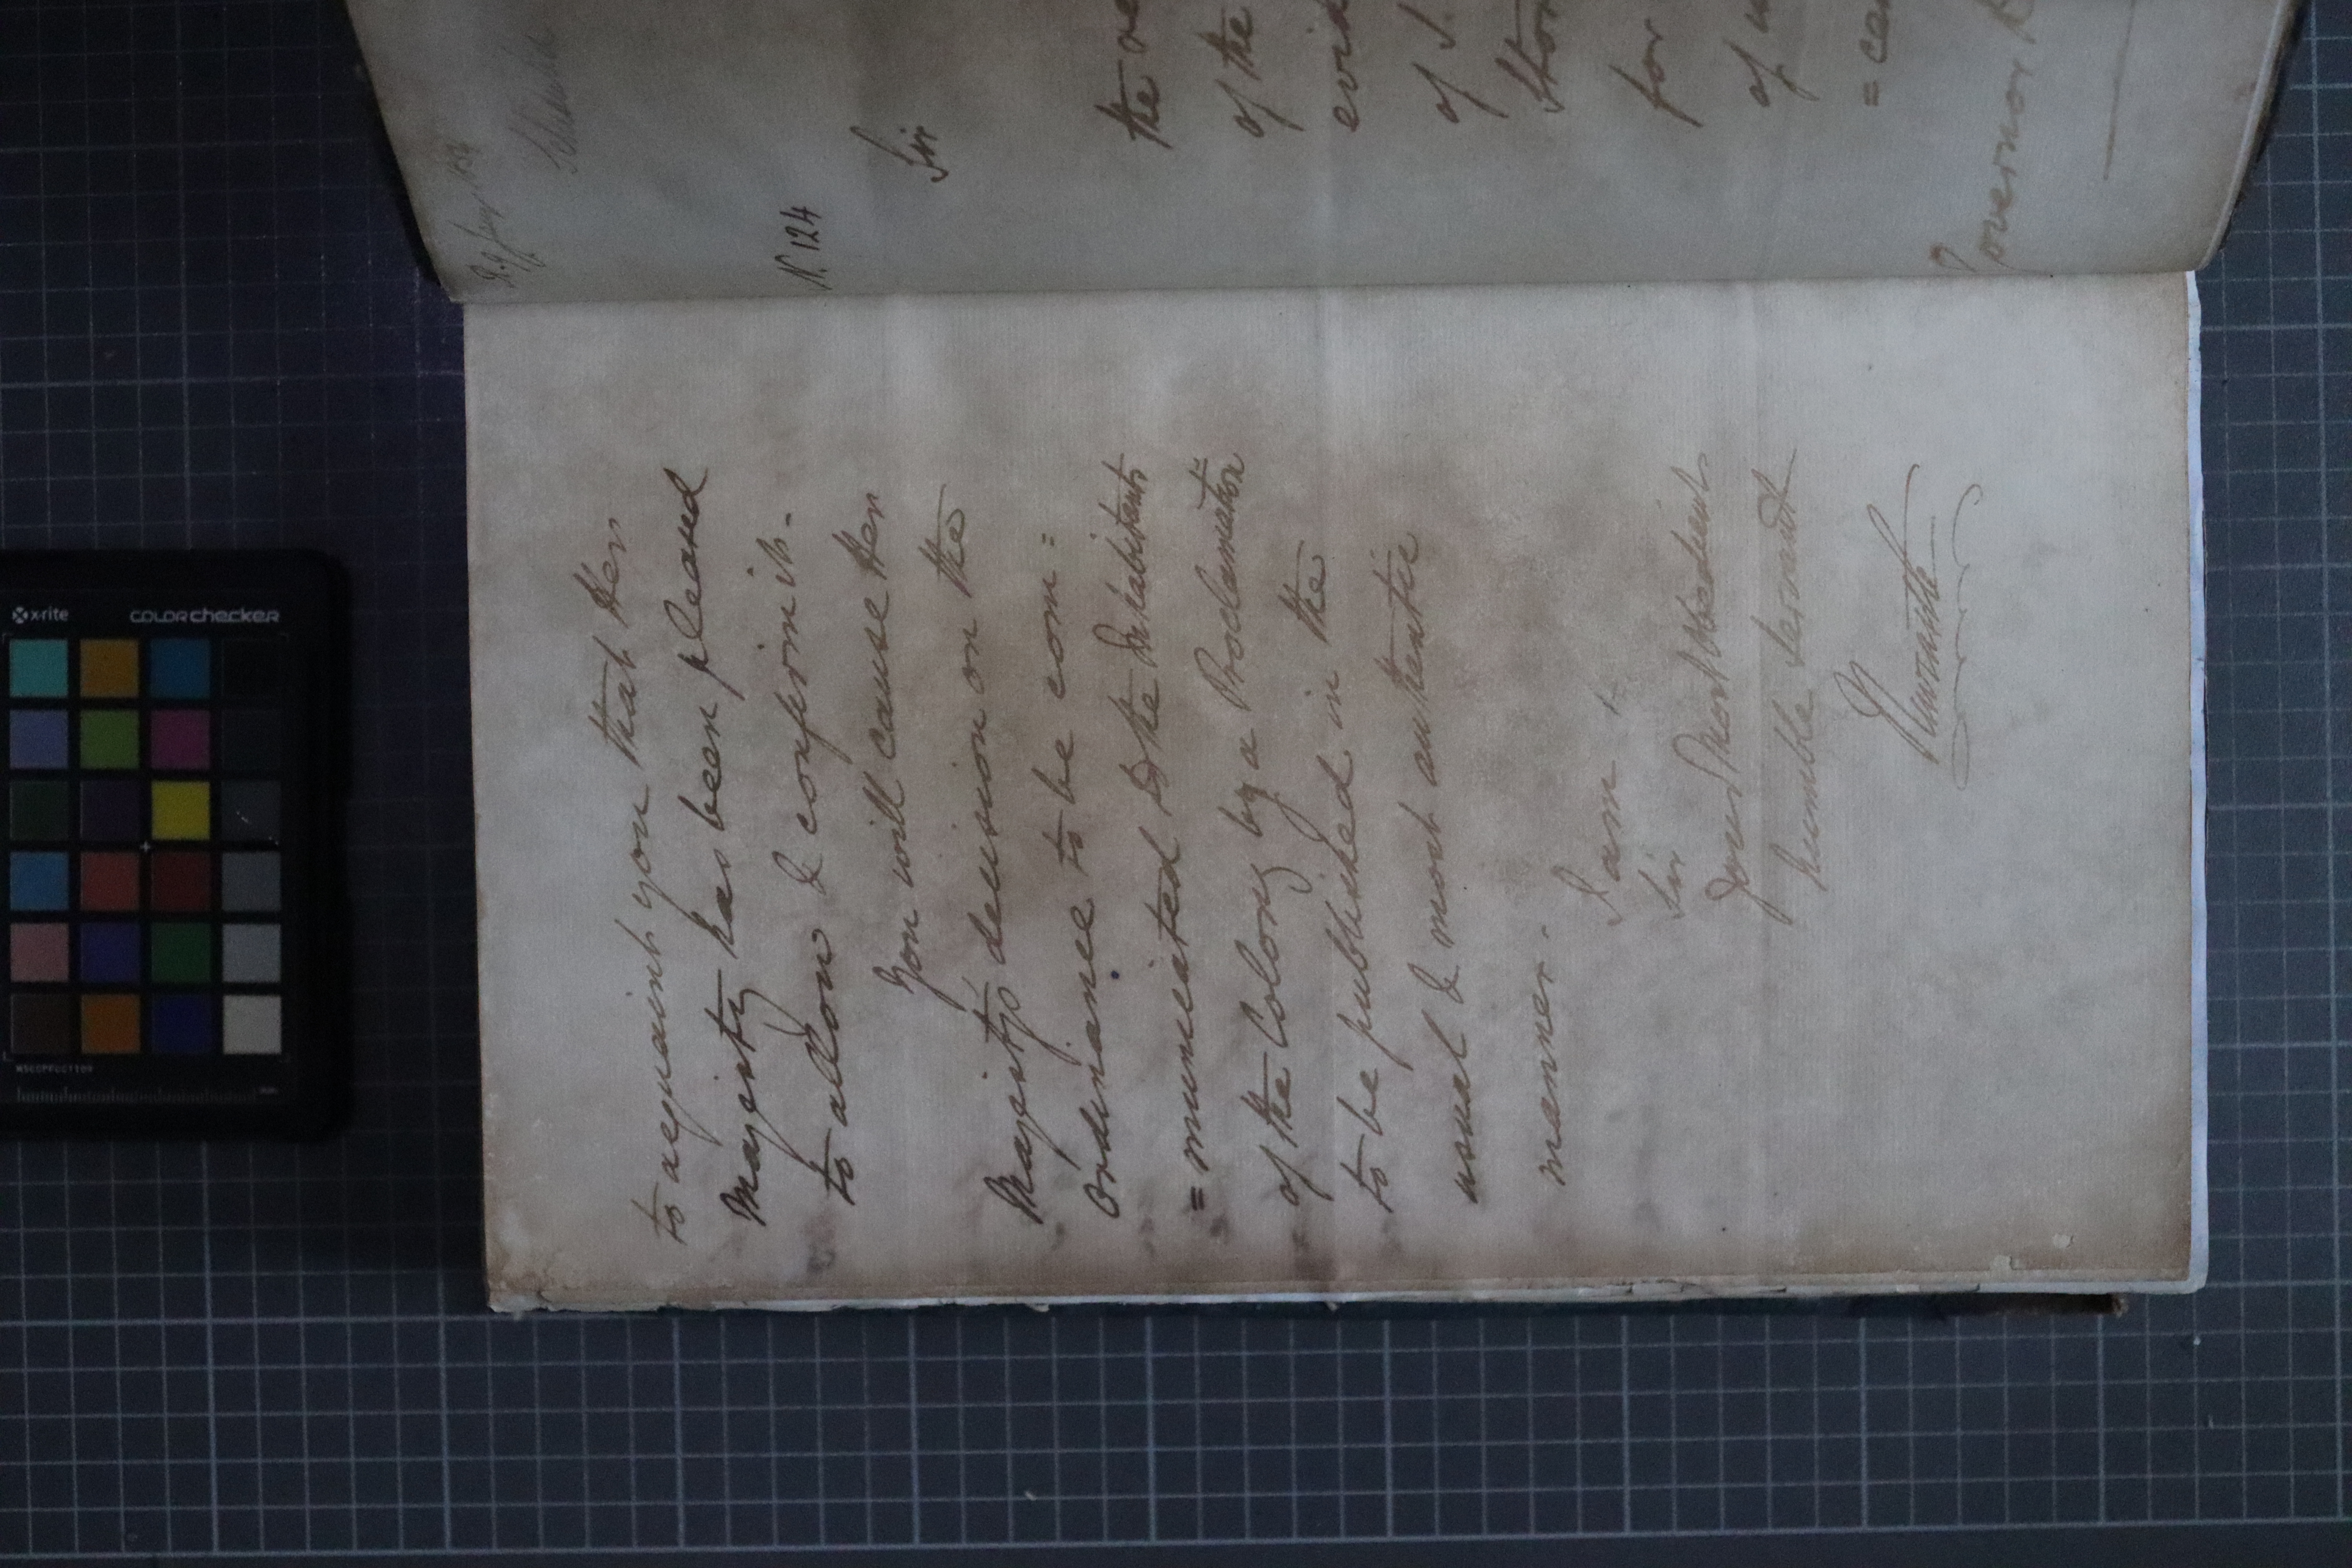 to acquaint you that Her
Majesty has been pleased
to allow & confirm it.
You will cause Her
Majesty's decision on the
Ordinance to be com=
=municated to the Inhabitants
of the Colony by a Proclamation
to be published in the
usual & most authentic
manner.
I am
Sir
Your Most Obedient
humble Servant
Newcastle
N. 124
Sir
the
of the
of
for
of
Governor
x-rite
colorchecker